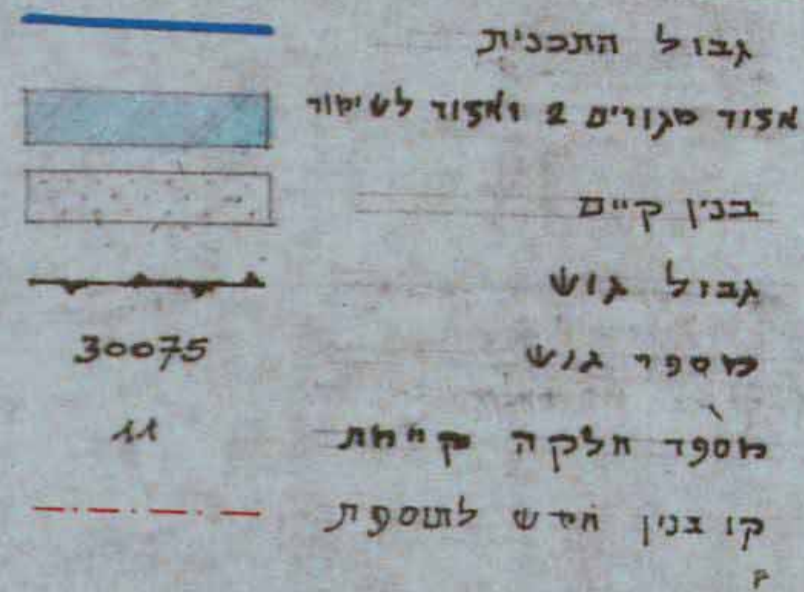 גבול התכנית
אזור מגורים 2 ואזור לשימור
בנין קיים
גבול גוש
מספר גוש 30075
מספר חלקה קיימת 11
קו בנין חדש לתוספת